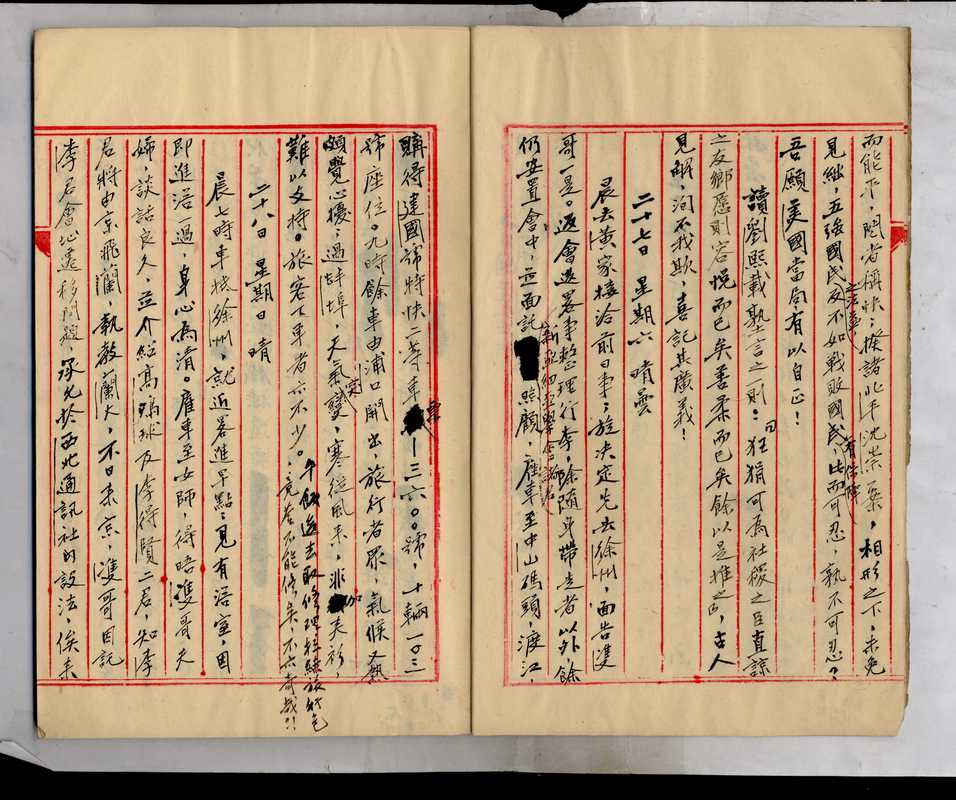 而能平，閱者稱快，揆諸北平沈崇案，相形之下，未免
見絀，五强國民之法益反不如戰敗國民有保障，此而可忍，孰不可忍？
吾願美國當局，有以自正！
讀劉熙載塾言之一則：曰狂狷可為社稷之臣直諒
之友鄉愿則容悅而已矣善柔而已矣餘以是推之，古人
見解，洵不我欺，喜記其廣義！
二十七日 星期六 晴曇
晨去黃家接洽前日事；旋決定先去徐州，面告雙
哥一是。返會後畧事整理行李，除隨身帶走者以外餘
仍安置會中，並面託照顧，雇車至中山碼頭，渡江，
購得建國號特快二等車票一三六〇〇號，十輛一〇三
號座位。九時餘車由浦口開出，旅行者眾，氣候又熱
頗覺心擾，過蚌埠，天氣突變，寒從風来，非加夫衫，
難以支持。旅客下車者亦不少。
午飯後去取修理拉鍊旅行包
，竟答不能修矣，不亦奇哉？！
二十八日 星期日 晴
晨七時車抵徐州，就近畧進早點；見有浴室，因
即進浴一過，身心為清。雇車至女師，得晤雙哥夫
婦，談話良久，並介紹高鴻球及李得賢二君，知李
君將由京飛蘭，執教蘭大，不日来京，雙哥因託
李君會址遷移問題，承允於西北通訊社内設法，俟来